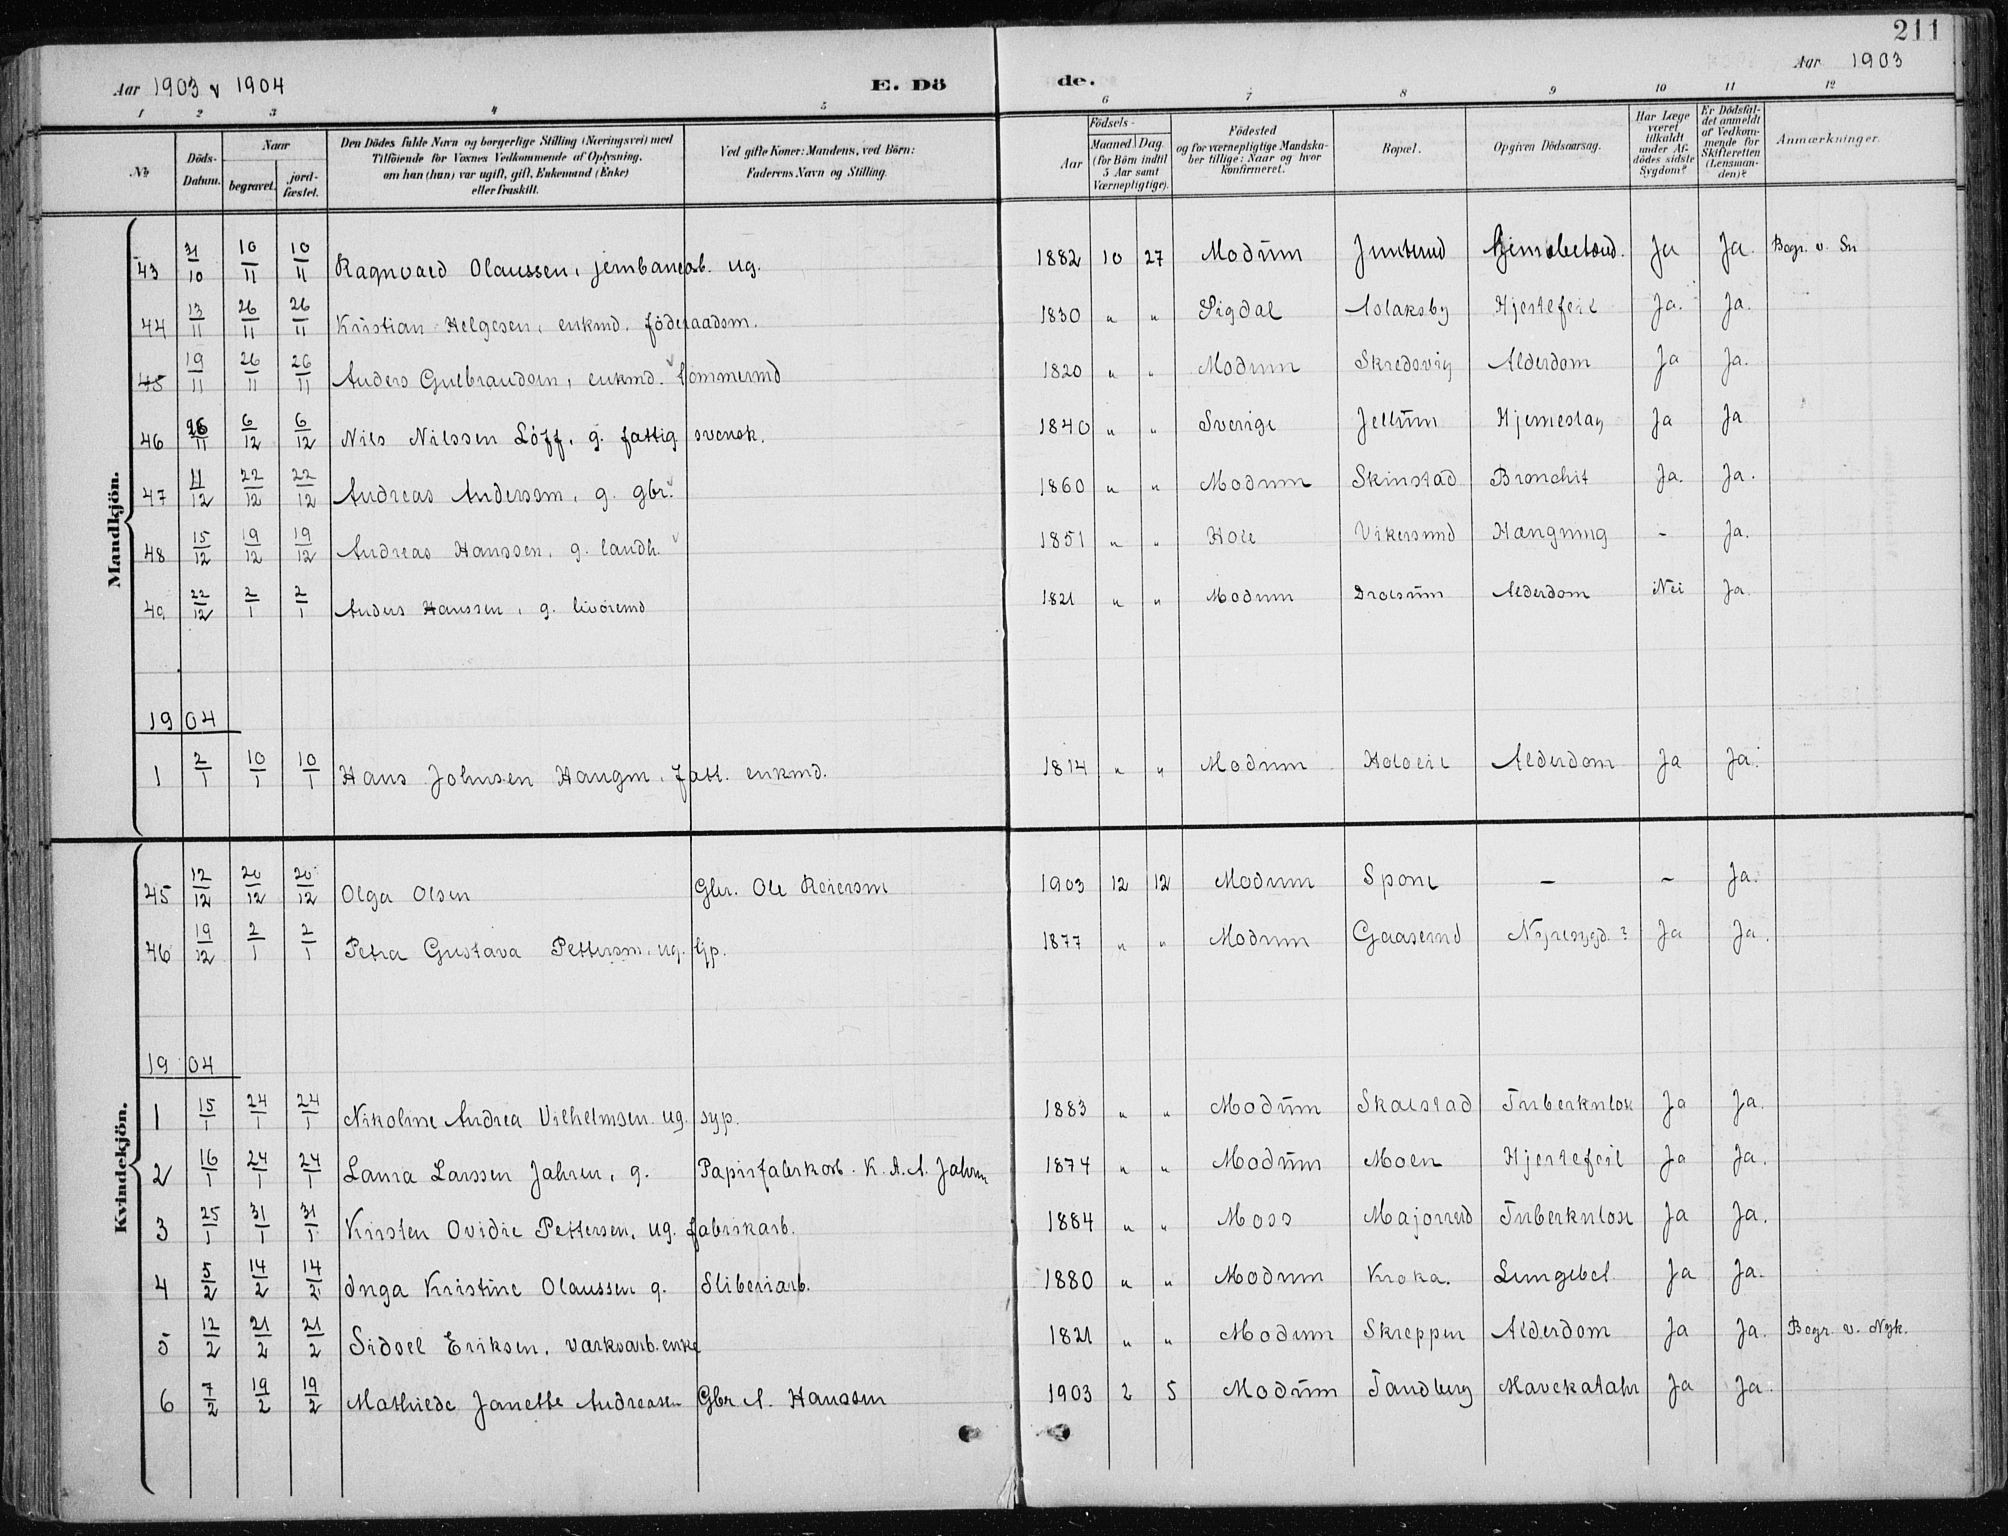 211
Aar 1903 & 1904 E. Dö de. Aar 1903
1 2 3 4 5 6 7 8 9 10 11 12
No. Döds-Datum. Naar begravet. jord-fæstet. Den Dödes fulde Navn og borgerlige Stilling (Næringsvei) med Tilföiende for Voxnes Vedkommende af Oplysning, om han (hun) var ugift, gift, Enkemand (Enke) eller fraskilt. Ved gifte Koner: Mandens, ved Börn: Faderens Navn og Stilling. Födsels- Aar Maaned Dag (for Börn indtil 5 Aar samt Værnepligtige). Födested og for værnepligtige Mandskaber tillige: Naar og hvor konfirmeret. Bopæl. Opgiven Dödsaarsag. Har Læge været tilkaldt under Afdödes sidste Sygdom? Er Dödsfaldet anmeldt af Vedkommende for Skifteretten (Lensmanden)? Anmærkninger.
Mandkjön.
43 31/10 10/11 10/11 Ragnvald Olaussen, jernbanearb. ug. 1882 10 27 Modum Ja Ja. Begr. v. Sn
44 13/11 26/11 26/11 Kristian Helgesen, enkmd. föderaadsm. 1830 " " Sigdal Aslaksby Hjertefeil Ja. Ja.
45 19/11 26/11 26/11 Anders Gulbrandsen, enkmd. tömmermd 1820 " " Modum Skredsvig Alderdom Ja Ja.
46 26/11 6/12 6/12 Nils Nilssen Löff, g. fattig svensk. 1840 " " Sverige Jellum Hjerneslag Ja Ja
47 11/12 22/12 22/12 Andreas Anderssen, g. gbr. 1860 " " Modum Skinstad Bronchit Ja. Ja.
48 15/12 19/12 19/12 Andreas Hanssen, g. landh. 1851 " " Hole Vikersund Hængning - Ja.
49 22/12 2/1 2/1 Anders Hanssen, g. livöremd 1821 " " Modum Drolsum Alderdom Nei Ja.
1904
1 2/1 10/1 10/1 Hans Johnsen Haugen, fatt. enkmd. 1814 " " Modum Alderdom Ja Ja.
Kvindekjön.
45 12/12 20/12 20/12 Olga Olsen Gbr. Ole Reiersen 1903 12 12 Modum Spone - - Ja.
46 19/12 2/1 2/1 Petra Gustava Pettersen, ug. tjp. 1877 " " Modum Gaaserud Nyresygd. ? Ja Ja.
1904
1 15/1 24/1 24/1 Nikoline Andrea Vilhelmsen ug. syp. 1883 " " Modum Skalstad Tuberkulose Ja Ja.
2 16/1 24/1 24/1 Laura Larssen Jahren, g. Papirfabrkarb. K. A. A. Jahren 1874 " " Modum Moen Hjertefeil Ja Ja.
3 25/1 31/1 31/1 Kirsten Ovidie Pettersen, ug. fabrikarb. 1884 " " Moss Majorrud Tuberkulose Ja Ja.
4 5/2 14/2 14/2 Inga Kristine Olaussen g. Sliberiarb. 1880 " " Modum Kroka. Lungebet. Ja Ja.
5 12/2 21/2 21/2 Sidsel Eriksen, værksarb. enke 1821 " " Modum Skreppen Alderdom Ja Ja. Begr. v. Nyk.
6 7/2 19/2 19/2 Mathilde Janette Andreasen Gbr A. Hanssen 1903 2 5 Modum Tandberg Mavekatahr Ja Ja.